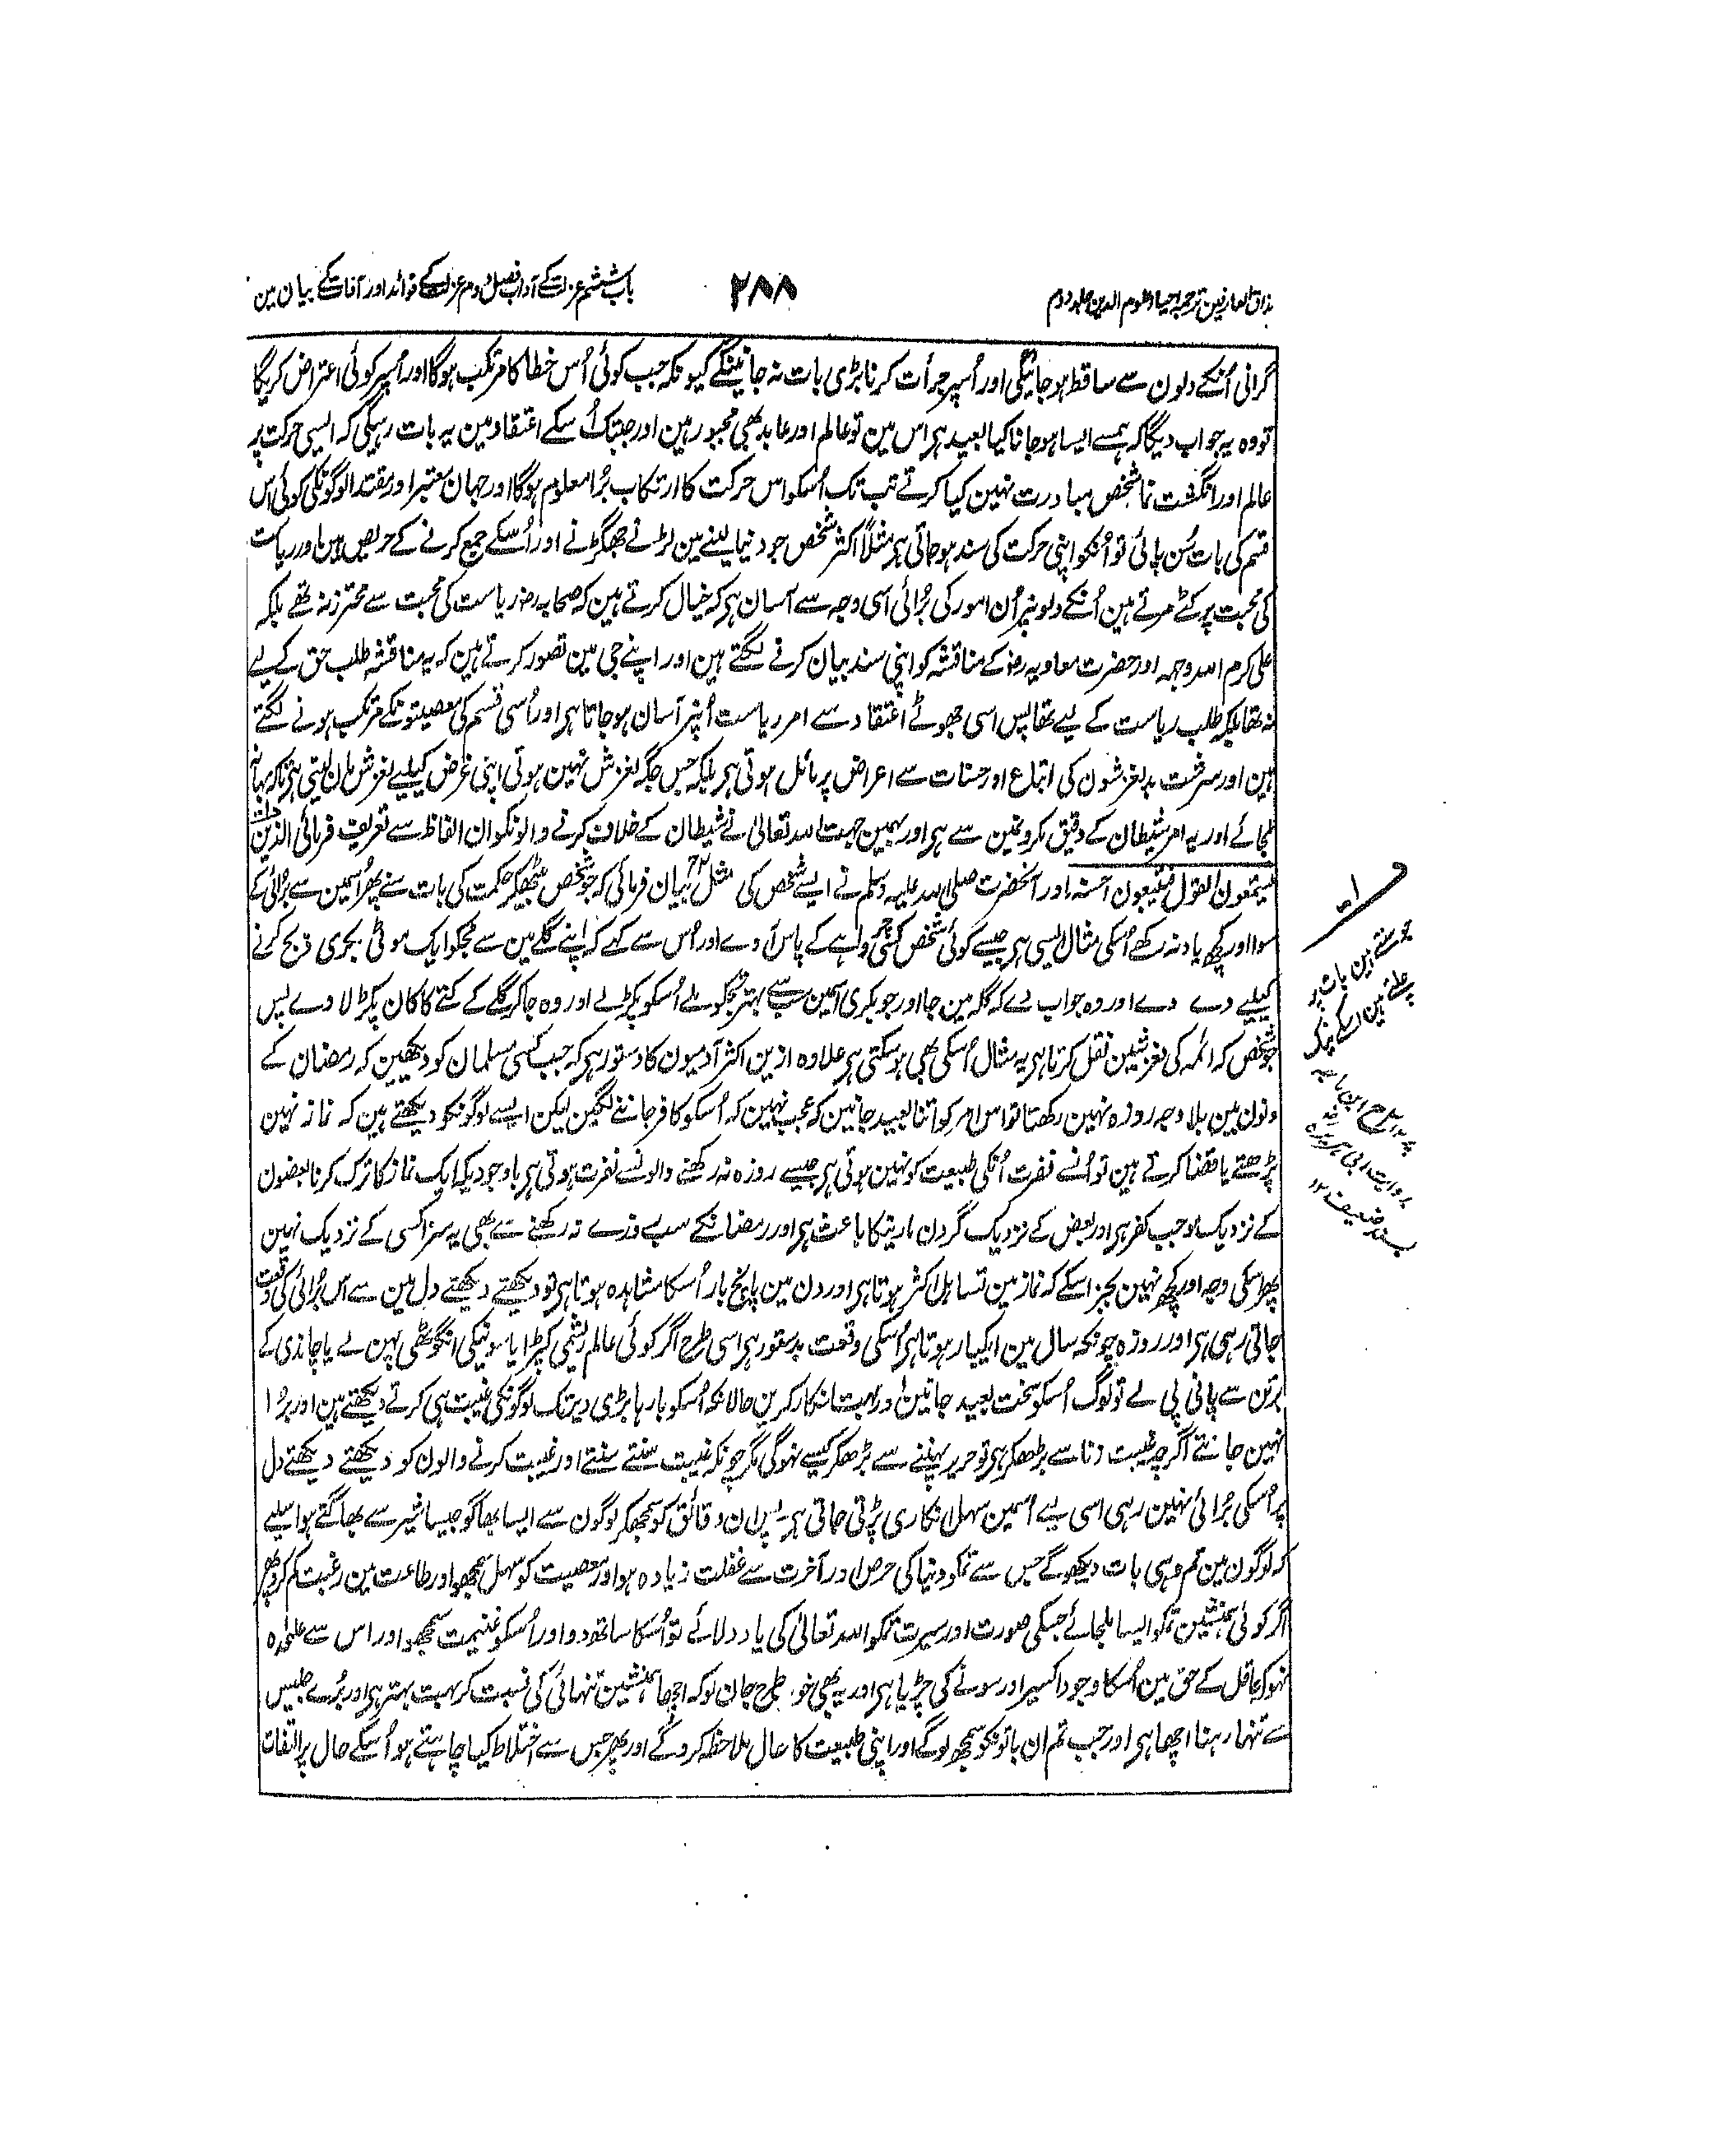 مذاق العارفین ترجمہ احیاء علوم الدین جلد دوم
۲۸۸
باب ششم عزلت کے آداب فصل دوم عزلت کے فوائد اور آفات کے بیان مین
گرانی اُنکے دلون سے ساقط ہو جائیگی اور اُسپر جرأت کرنا بڑی بات نہ جانینگے کیونکہ جب کوئی اُس خطا کا مرتکب ہوگا اور اُسپر کوئی اعتراض کریگا
تو وہ یہ جواب دیگا کہ ہمسے ایسا ہو جانا کیا بعید ہی اس مین تو عالم اور عابد بھی مجبور ہین اور جبتک اُسکے اعتقاد مین یہ بات رہیگی کہ ایسی حرکت پر
عالم اور انگشت نما شخص مبادرت نہین کیا کرتے تب تک اُسکو اس حرکت کا ارتکاب بُرا معلوم ہوگا اور جہان معتبر اور مقتدا لوگونکی کوئی اس
قسم کی بات سُن پائی تو اُنکو اپنی حرکت کی سند ہو جاتی ہی مثلاً اکثر شخص جو دنیا لینے مین لڑنے جھگڑنے اور اُسکے جمع کرنے کے حریص ہین اور ریاست
کی محبت پر کٹے مرتے ہین اُنکے دلونپر اُن امور کی بُرائی اسی وجہ سے آسان ہی کہ خیال کرتے ہین کہ صحابہ رض ریاست کی محبت سے محترز نہ تھے بلکہ
علی کرم اللہ وجہہ اور حضرت معاویہ رض کے مناقشہ کو اپنی سند بیان کرنے لگتے ہین اور اپنے جی مین تصور کرتے ہین کہ یہ مناقشہ طلب حق کے لیے
نہ تھا بلکہ طلب ریاست کے لیے تھا پس اسی جھوٹے اعتقاد سے امر ریاست اُنپر آسان ہو جاتا ہی اور اُسی قسم کی معصیتونکے مرتکب ہونے لگتے
ہین اور سرشت بد لغزشون کی اتباع اور حسنات سے اعراض پر مائل ہوتی ہی بلکہ جس جگہ لغزش نہین ہوتی اپنی غرض کیلیے لغزش مان لیتی ہی تاکہ بہانہ
ملجائے اور یہ امر شیطان کے دقیق مکرونمین سے ہی اور ہمین جہت اللہ تعالیٰ نے شیطان کے خلاف کرنے والونکو ان الفاظ سے تعریف فرمائی الذین
یستمعون القول فیتبعون احسنہ اور آنحضرت صلی اللہ علیہ وسلم نے ایسے شخص کی مثل بیان فرمائی کہ جو شخص بیٹھکر حکمت کی بات سنے پھر اُسمین سے بُرائی کے
سوا اور کچھ یاد نہ رکھے اُسکی مثال ایسی ہی جیسے کوئی شخص کسی چرواہے کے پاس آوے اور اُس سے کہے کہ اپنے گلے مین سے مجکو ایک موٹی بکری ذبح کرنے
کیلیے دے دے اور وہ جواب دے کہ گلہ مین جا اور جو بکری اُسمین سب سے بہتر تجکو ملے اُسکو پکڑ لے اور وہ جا کر گلے کے کتے کا کان پکڑ لا دے پس
جو شخص کہ ائمہ کی لغزشین نقل کرتا ہی یہ مثال اُسکی بھی ہو سکتی ہی علاوہ ازین اکثر آدمیون کا دستور ہی کہ جب کسی مسلمان کو دیکھین کہ رمضان کے
دنون مین بلا وجہ روزہ نہین رکھتا تو اس امر کو اتنا بعید جانین کہ عجب نہین کہ اُسکو کافر جاننے لگین لیکن ایسے لوگونکو دیکھتے ہین کہ نماز نہین
پڑھتے یا قضا کرتے ہین تو اُنسے نفرت اُنکی طبیعت کو نہین ہوتی ہی جیسے روزہ نہ رکھنے والونسے نفرت ہوتی ہی باوجودیکہ ایک نماز کا ترک کرنا بعضون
کے نزدیک موجب کفر ہی اور بعض کے نزدیک گردن مارنیکا باعث ہی اور رمضانکے سب روزے نہ رکھنے سے بھی یہ سزا کسی کے نزدیک نہین
پھر اسکی وجہ اور کچھ نہین بجز اسکے کہ نماز مین تساہل اکثر ہوتا ہی اور دن مین پانچ بار اُسکا مشاہدہ ہوتا ہی تو دیکھتے دیکھتے دل مین سے اُس بُرائی کی وقعت
جاتی رہی ہی اور روزہ چونکہ سال مین ایکبار ہوتا ہی اُسکی وقعت بدستور ہی اسی طرح اگر کوئی عالم ریشمی کپڑا یا سونیکی انگوٹھی پہن لے یا چاندی کے
برتن سے پانی پی لے تو لوگ اُسکو سخت بعید جانین اور بہت انکار کرین حالانکہ اُسکو بارہا بڑی دیر تک لوگونکی غیبت ہی کرتے دیکھتے ہین اور بُرا
نہین جانتے اگرچہ غیبت زنا سے بڑھکر ہی تو حریر پہننے سے بڑھکر کیسے نہوگی مگر چونکہ غیبت سنتے سنتے اور غیبت کرنے والون کو دیکھتے دیکھتے دل
پر اُسکی بُرائی نہین رہی اسی لیے اُسمین سہل انکاری پڑتی جاتی ہی پس ان دقائق کو سمجھکر لوگون سے ایسا بھاگو جیسا شیر سے بھاگتے ہو اسلیے
کہ لوگون مین تم وہی بات دیکھوگے جس سے تمکو دنیا کی حرص اور آخرت سے غفلت زیادہ ہو اور معصیت کو سہل سمجھو اور طاعت مین رغبت کم کرو پھر
اگر کوئی ہمنشین تمکو ایسا ملجائے جسکی صورت اور سیرت تمکو اللہ تعالیٰ کی یاد دلائے تو اُسکا ساتھ دو اور اُسکو غنیمت سمجھو اور اس سے علٰحدہ
نہو کہ عاقل کے حق مین اُسکا وجود اکسیر اور سونے کی چڑیا ہی اور یہ بھی خوب طرح جان لو کہ اچھا ہمنشین تنہائی کی نسبت کر بہت بہتر ہی اور بُرے جلیس
سے تنہا رہنا اچھا ہی اور جب تم ان باتونکو سمجھ لوگے اور اپنی طبیعت کا حال ملاحظہ کروگے اور پھر جس سے اختلاط کیا چاہتے ہو اُسکے حال پر التفات
جو سنتے ہین بات پر
چلتے ہین اسکے نیک
ابن ماجہ
بروایت ابی ہریرہ
بسند ضعیف ۱۲